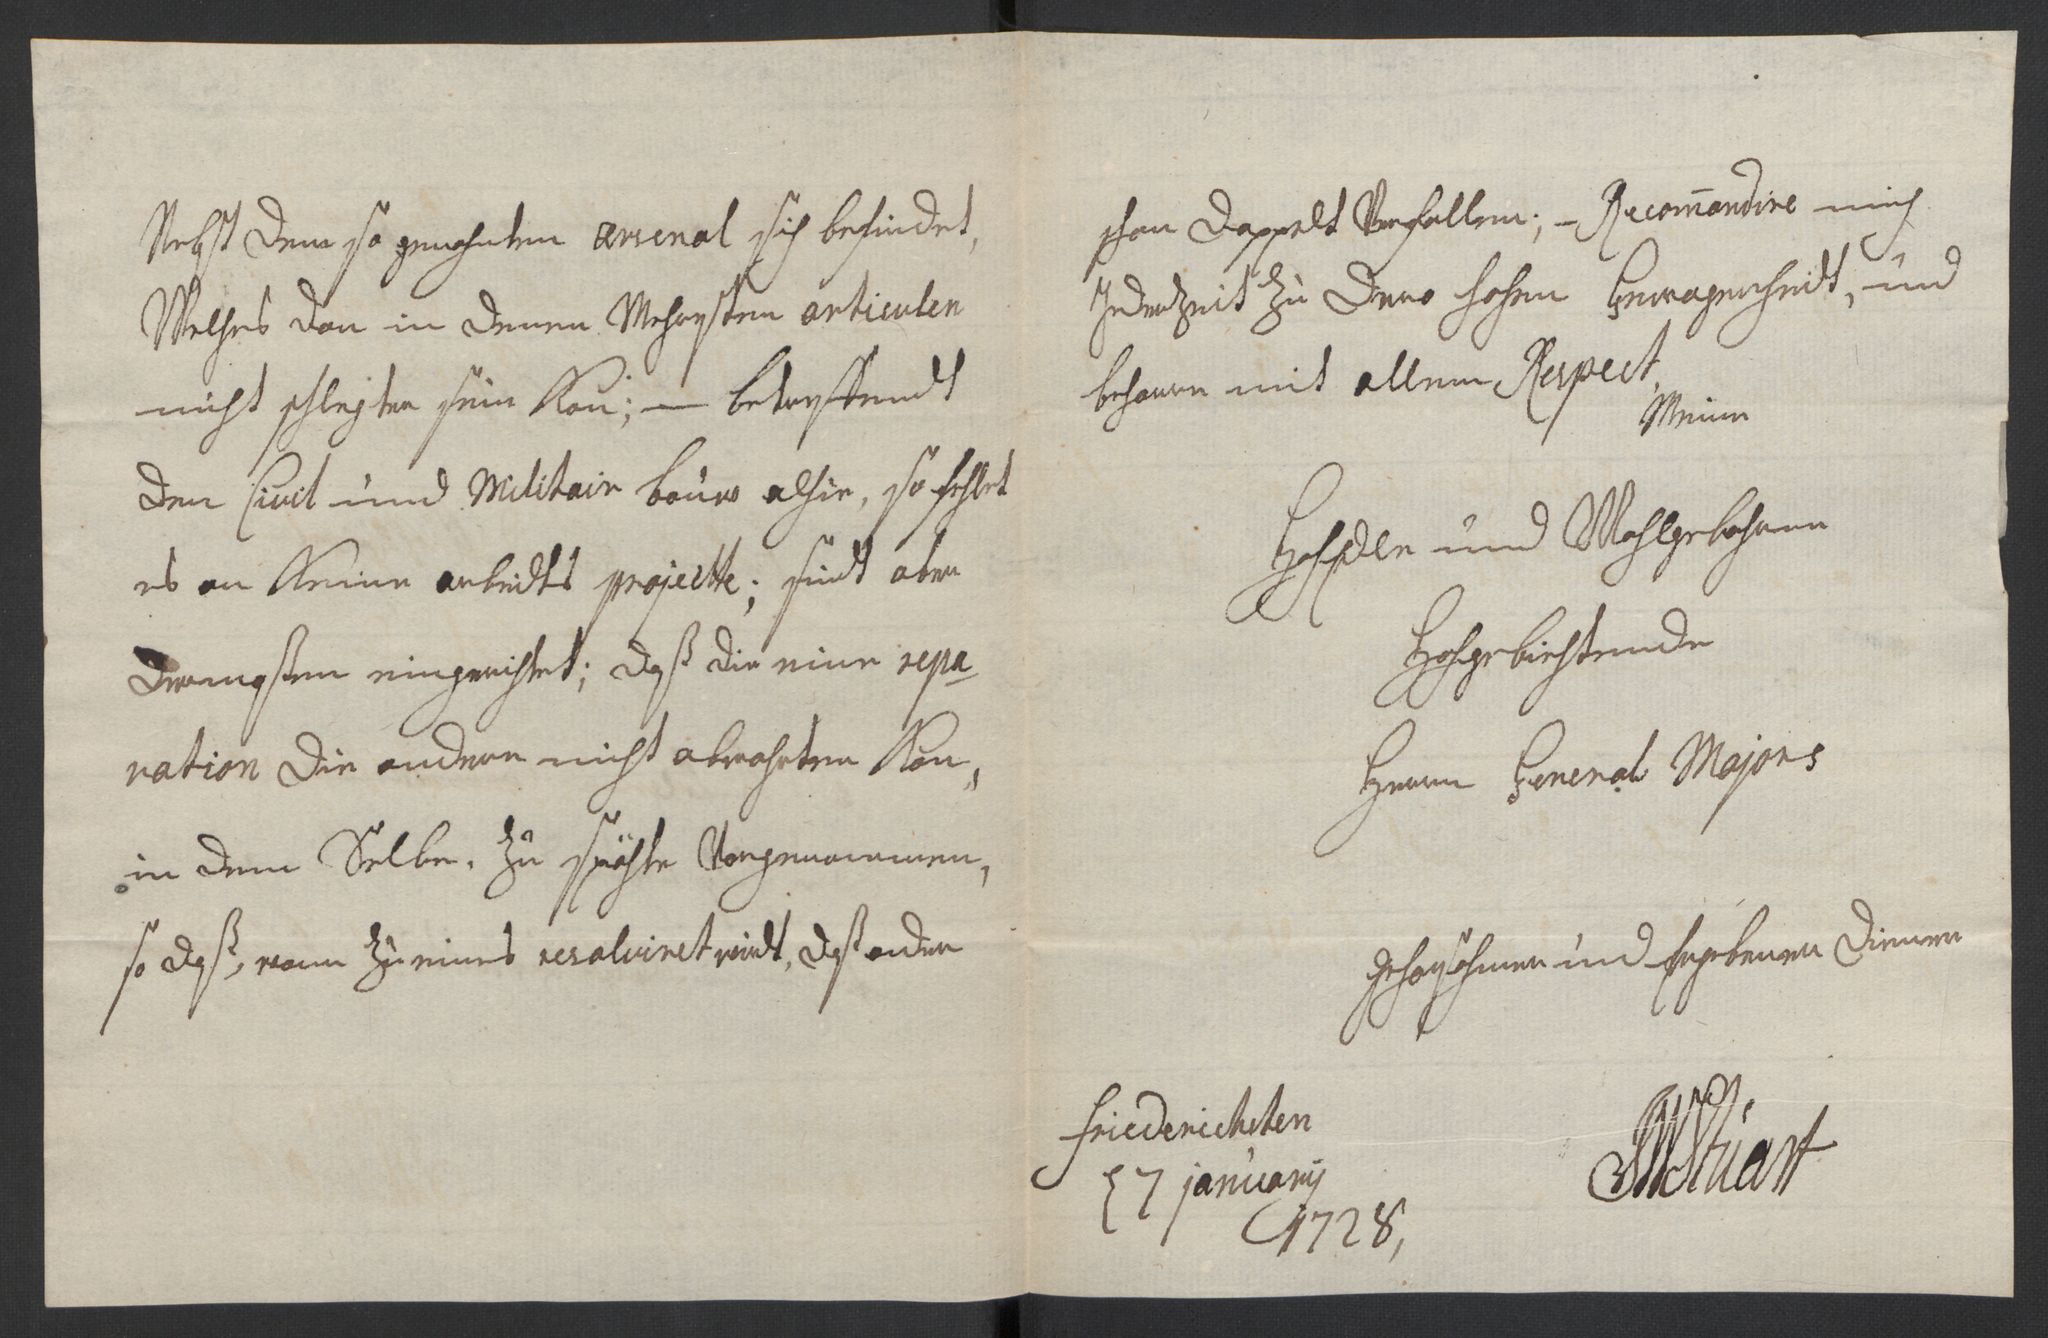 Nebst dem so genohnten arsenal sich befindet,
Welches dan in denen Mehrsten articulen
nicht schlegter sein Kan; – betreffendt
den Civil und Militair bauw alhie, so fehlet
es an Keine arbeidts projectte; sindt aber
dermaßen eingerichtet; daß die eine repa-
ration die andere nicht abwahrten Kan,
in dem Selbe zu spähte Vorgenommen,
so daß, wann zu eines resolviret wirdt, daß ander
schon doppelt Verfallen; – Recom̄andire mich
Jederzeit zu Dero hohen Gewagenheidt, und
beharre mit allem Respect,
Meine
HochEdle und Wohlgebohrne
Hochgebiehtende
Herrn General Majors
gehorsahmer und Ergebener Diener
Friederichsten
27 january
1728,
Stuart